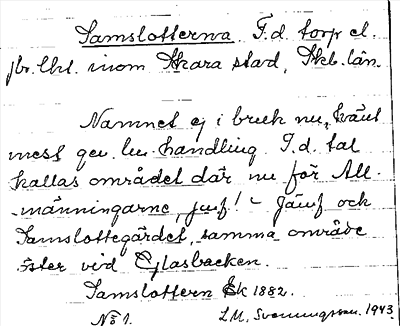 Samslotterna. F.d. torp el.
jbr. lht. inom Skara stad, Skb. län.
Namnet ej i bruk nu, känt
mest gen. en handling. F.d. tal
kallas området där nu för All-
männingarne, juf! - Jämf och
Samslottegärdet, samma område
öster vid Glasbacken.
Samslottern Ek 1882.
No 1. L.M. Svenningsson. 1943.